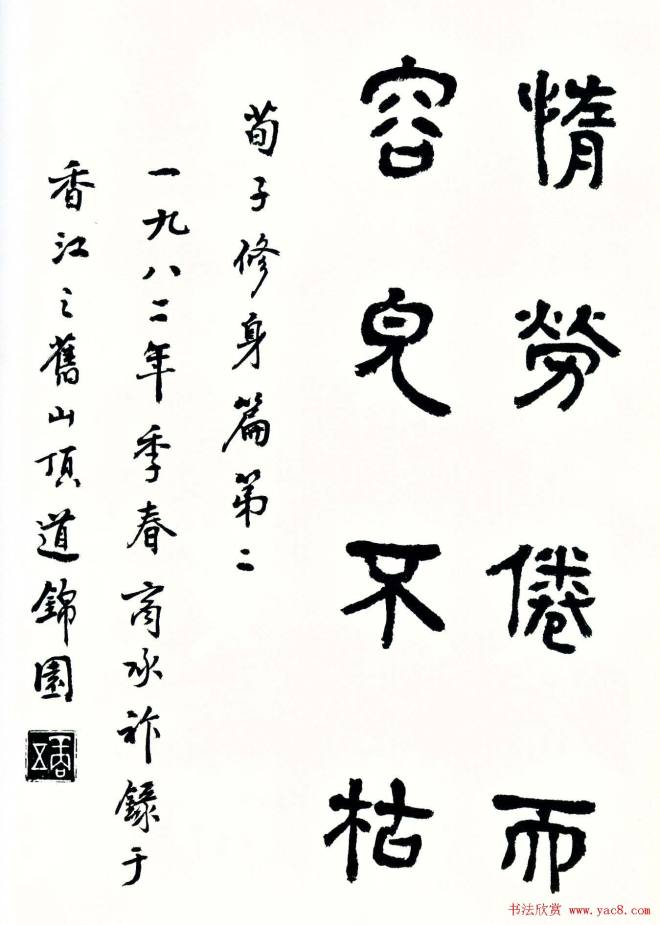 惰勞倦而
容皃不枯
荀子修身篇第二
一九八二年季春商承祚錄于
香江之舊山頂道錦園
书法欣赏 www.yac8.com